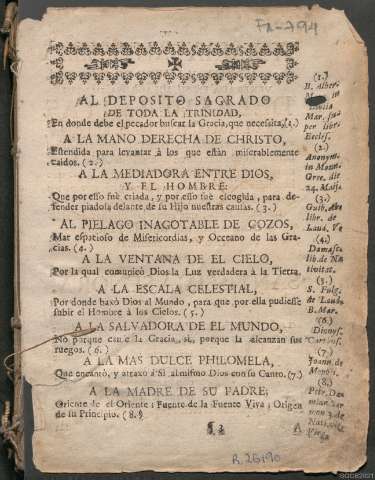 AL DEPOSITO SAGRADO
DE TODA LA TRINIDAD,
En donde debe el pecador buscar la Gracia, que necesita, (1.)
A LA MANO DERECHA DE CHRISTO,
Estendida para levantar à los que estàn miserablemente
caìdos. (2.)
A LA MEDIADORA ENTRE DIOS,
Y EL HOMBRE:
Que por esso fue criada, y por esso fue escogida, para de-
fender piadosa delante de su Hijo nuestras causas. (3.)
AL PIELAGO INAGOTABLE DE GOZOS,
Mar espacioso de Misericordias, y Occeano de las Gra-
cias. (4.)
A LA VENTANA DE EL CIELO,
Por la qual comunicò Dios la Luz verdadera à la Tierra.
A LA ESCALA CELESTIAL,
Por donde baxò Dios al Mundo, para que por ella pudiesse
subir el Hombre à los Cielos. (5.)
A LA SALVADORA DE EL MUNDO,
No porque cause la Gracia, si, porque la alcanzan sus
ruegos. (6.)
A LA MAS DULCE PHILOMELA,
Que encantò, y atraxo à Si al mismo Dios con su Canto. (7.)
A LA MADRE DE SU PADRE,
Oriente de el Oriente: Fuente de la Fuente Viva; Origen
de su Principio. (8.)
(1.)
B. Alber.
in
Mar. sup
per libr.
Eccles.
(2.)
Anonym.
in Mone
Græc. die
24. Maij.
(3.)
lib. de
Laud. Ve
(4.)
Damasc.
lib. de Na
tivitat.
(5.)
S. Fulg.
de Laud.
B. Mar.
(6.)
Dionys.
(7.)
Joann. de
(8.)
Petr. Da
mian. Ser
Nati
Virgi
A
R. 26190